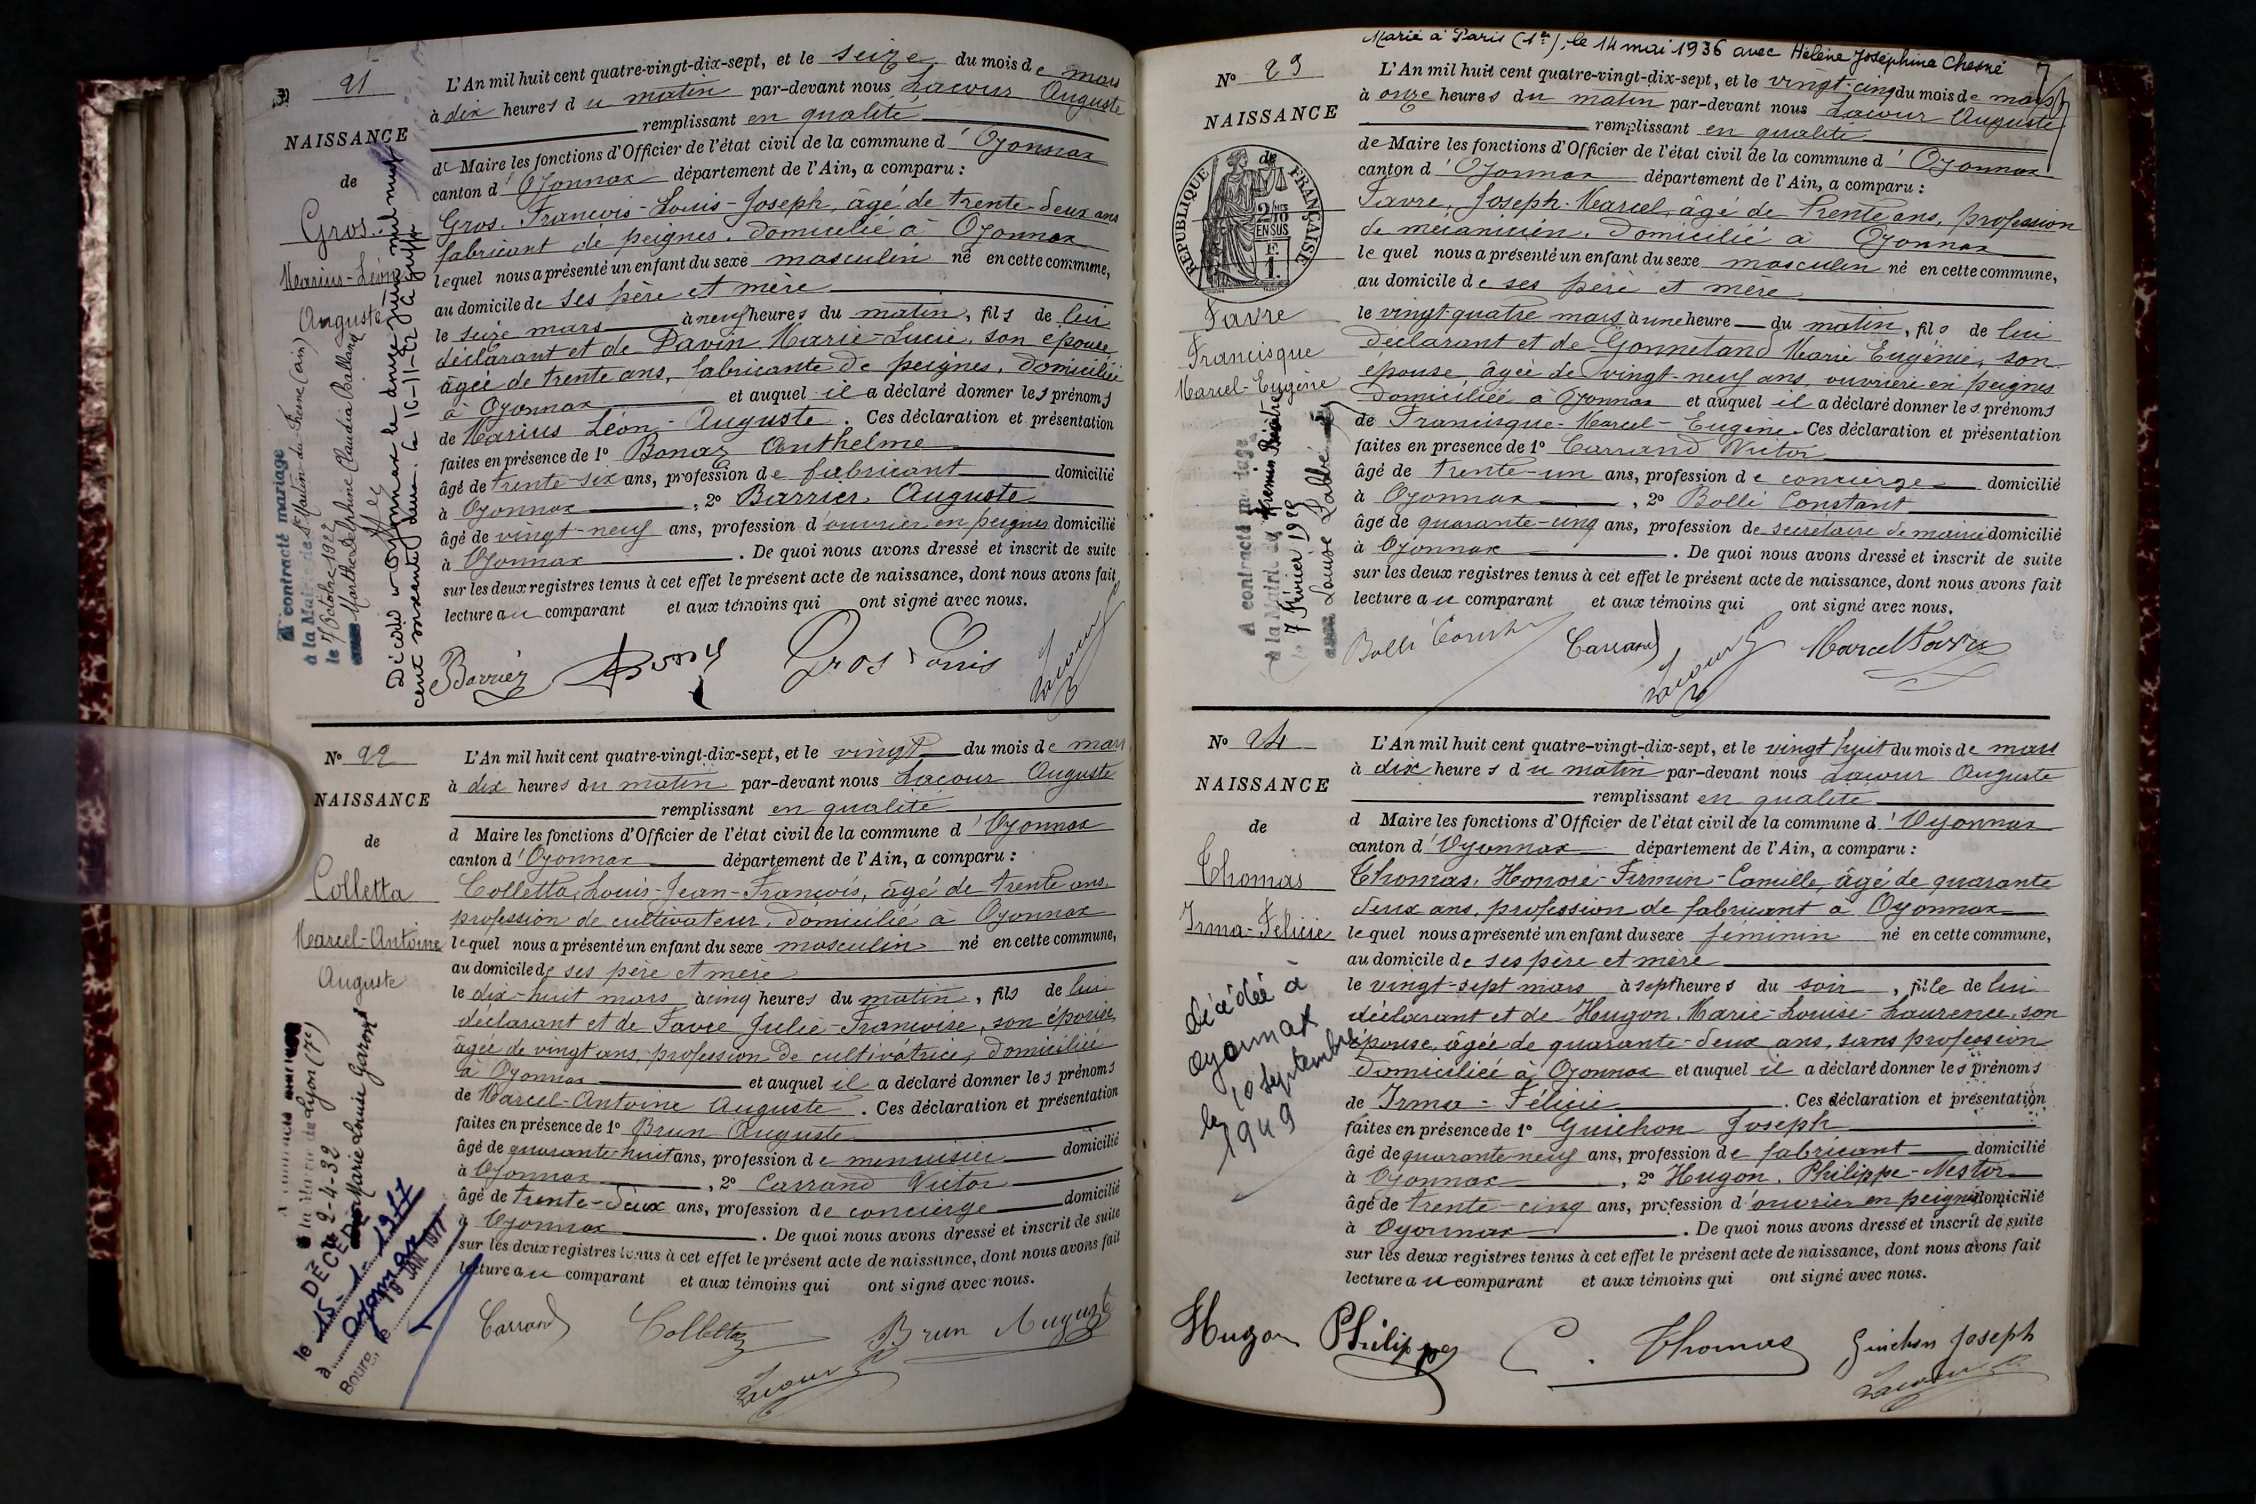 21
NAISSANCE
de
Gros
Marius-Léon
Auguste
A contracté mariage
à la Mairie de St Martin du Fresne (ain)
le 7 Octobre 1922
avec Marthe Delphine Claudia
Décédé à Oyonnax le onze juin mil neuf
cent soixante deux.
L'An mil huit cent quatre-vingt-dix-sept, et le seize du mois de mars
à dix heures du matin par-devant nous Lacour Auguste
remplissant en qualité
de Maire les fonctions d'Officier de l'état civil de la commune d'Oyonnax
canton d'Oyonnax département de l'Ain, a comparu :
Gros, François-Louis-Joseph, âgé de trente-deux ans
fabricant de peignes, domicilié à Oyonnax
lequel nous a présenté un enfant du sexe masculin né en cette commune,
au domicile de ses père et mère
le seize mars à neuf heures du matin, fils de lui
déclarant et de Pavin Marie-Lucie, son épouse
âgée de trente ans, fabricante de peignes, domiciliée
à Oyonnax et auquel il a déclaré donner les prénoms
de Marius Léon-Auguste. Ces déclaration et présentation
faites en présence de 1º Bonaz Anthelme
âgé de trente-six ans, profession de fabricant domicilié
à Oyonnax, 2º Barrier Auguste
âgé de vingt-neuf ans, profession d'ouvrier en peignes domicilié
à Oyonnax. De quoi nous avons dressé et inscrit de suite
sur les deux registres tenus à cet effet le présent acte de naissance, dont nous avons fait
lecture au comparant et aux témoins qui ont signé avec nous.
Gros Louis
Nº 22
NAISSANCE
de
Colletta
Marcel-Antoine
Auguste
à la Mairie de Lyon (7e)
le 2-4-32
avec Marie Louise
DÉCÉDÉ
le 15-1-1977
à Oyonnax
Bourg, le JAN. 1977
L'An mil huit cent quatre-vingt-dix-sept, et le vingt du mois de mars
à dix heures du matin par-devant nous Lacour Auguste
remplissant en qualité
d Maire les fonctions d'Officier de l'état civil de la commune d'Oyonnax
canton d'Oyonnax département de l'Ain, a comparu :
Colletta, Louis-Jean-François, âgé de trente ans,
profession de cultivateur, domicilié à Oyonnax
lequel nous a présenté un enfant du sexe masculin né en cette commune,
au domicile de ses père et mère
le dix-huit mars à cinq heures du matin, fils de lui
déclarant et de Favre Julie-Françoise, son épouse,
âgée de vingt ans, profession de cultivatrice, domiciliée
à Oyonnax et auquel il a déclaré donner les prénoms
de Marcel-Antoine Auguste. Ces déclaration et présentation
faites en présence de 1º Brun Auguste
âgé de quarante-huit ans, profession de menuisier domicilié
à Oyonnax, 2º Carrand Victor
âgé de trente-deux ans, profession de concierge domicilié
à Oyonnax. De quoi nous avons dressé et inscrit de suite
sur les deux registres tenus à cet effet le présent acte de naissance, dont nous avons fait
lecture au comparant et aux témoins qui ont signé avec nous.
Carrand Colletta Brun Auguste
Lacour
Marié à Paris (1er), le 14 mai 1936 avec Hélène Joséphine Chesné
7
Nº 23
NAISSANCE
de
RÉPUBLIQUE FRANÇAISE
2/10 EN SUS
Favre
Francisque
Marcel-Eugène
A contracté mariage
à la Mairie du Kremlin Bicêtre
le 7 Février 1928
avec Louise Labbé
L'An mil huit cent quatre-vingt-dix-sept, et le vingt-cinq du mois de mars
à onze heures du matin par-devant nous Lacour Auguste
remplissant en qualité
de Maire les fonctions d'Officier de l'état civil de la commune d'Oyonnax
canton d'Oyonnax département de l'Ain, a comparu :
Favre, Joseph-Marcel, âgé de trente ans, profession
de mécanicien, domicilié à Oyonnax
lequel nous a présenté un enfant du sexe masculin né en cette commune,
au domicile de ses père et mère
le vingt-quatre mars à une heure du matin, fils de lui
déclarant et de Gonnetand Marie Eugénie, son
épouse, âgée de vingt-neuf ans, ouvrière en peignes
domiciliée à Oyonnax et auquel il a déclaré donner les prénoms
de Francisque-Marcel-Eugène. Ces déclaration et présentation
faites en présence de 1º Carrand Victor
âgé de trente-un ans, profession de concierge domicilié
à Oyonnax, 2º Bolli Constant
âgé de quarante-cinq ans, profession de secrétaire de mairie domicilié
à Oyonnax. De quoi nous avons dressé et inscrit de suite
sur les deux registres tenus à cet effet le présent acte de naissance, dont nous avons fait
lecture au comparant et aux témoins qui ont signé avec nous.
Carrand Marcel Favre
Lacour
Nº 24
NAISSANCE
de
Thomas
Irma-Félicie
décédée à
Oyonnax
le 10 septembre
1949
L'An mil huit cent quatre-vingt-dix-sept, et le vingt huit du mois de mars
à dix heures du matin par-devant nous Lacour Auguste
remplissant en qualité
d Maire les fonctions d'Officier de l'état civil de la commune d'Oyonnax
canton d'Oyonnax département de l'Ain, a comparu :
Thomas, Honoré-Firmin-Camille, âgé de quarante
deux ans, profession de fabricant à Oyonnax
lequel nous a présenté un enfant du sexe féminin né en cette commune,
au domicile de ses père et mère
le vingt-sept mars à sept heures du soir, fille de lui
déclarant et de Hugon, Marie-Louise-Laurence, son
épouse, âgée de quarante-deux ans, sans profession
domiciliée à Oyonnax et auquel il a déclaré donner les prénoms
de Irma-Félicie. Ces déclaration et présentation
faites en présence de 1º Guichon Joseph
âgé de quarante-neuf ans, profession de fabricant domicilié
à Oyonnax, 2º Hugon, Philippe-Nestor
âgé de trente-cinq ans, profession d'ouvrier en peignes domicilié
à Oyonnax. De quoi nous avons dressé et inscrit de suite
sur les deux registres tenus à cet effet le présent acte de naissance, dont nous avons fait
lecture au comparant et aux témoins qui ont signé avec nous.
Hugon Philippe C. Thomas Guichon Joseph
Lacour